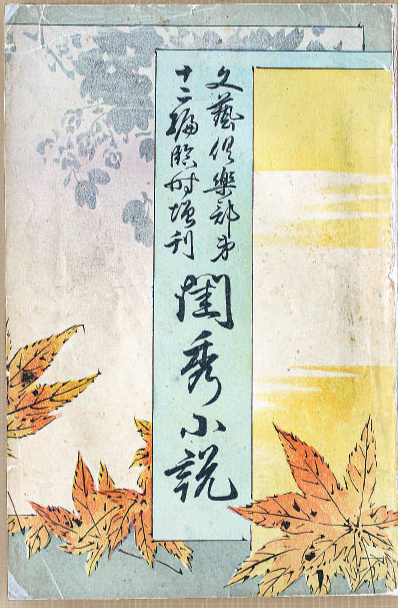 文藝倶樂部第
十二編臨时增刊
閨秀小説